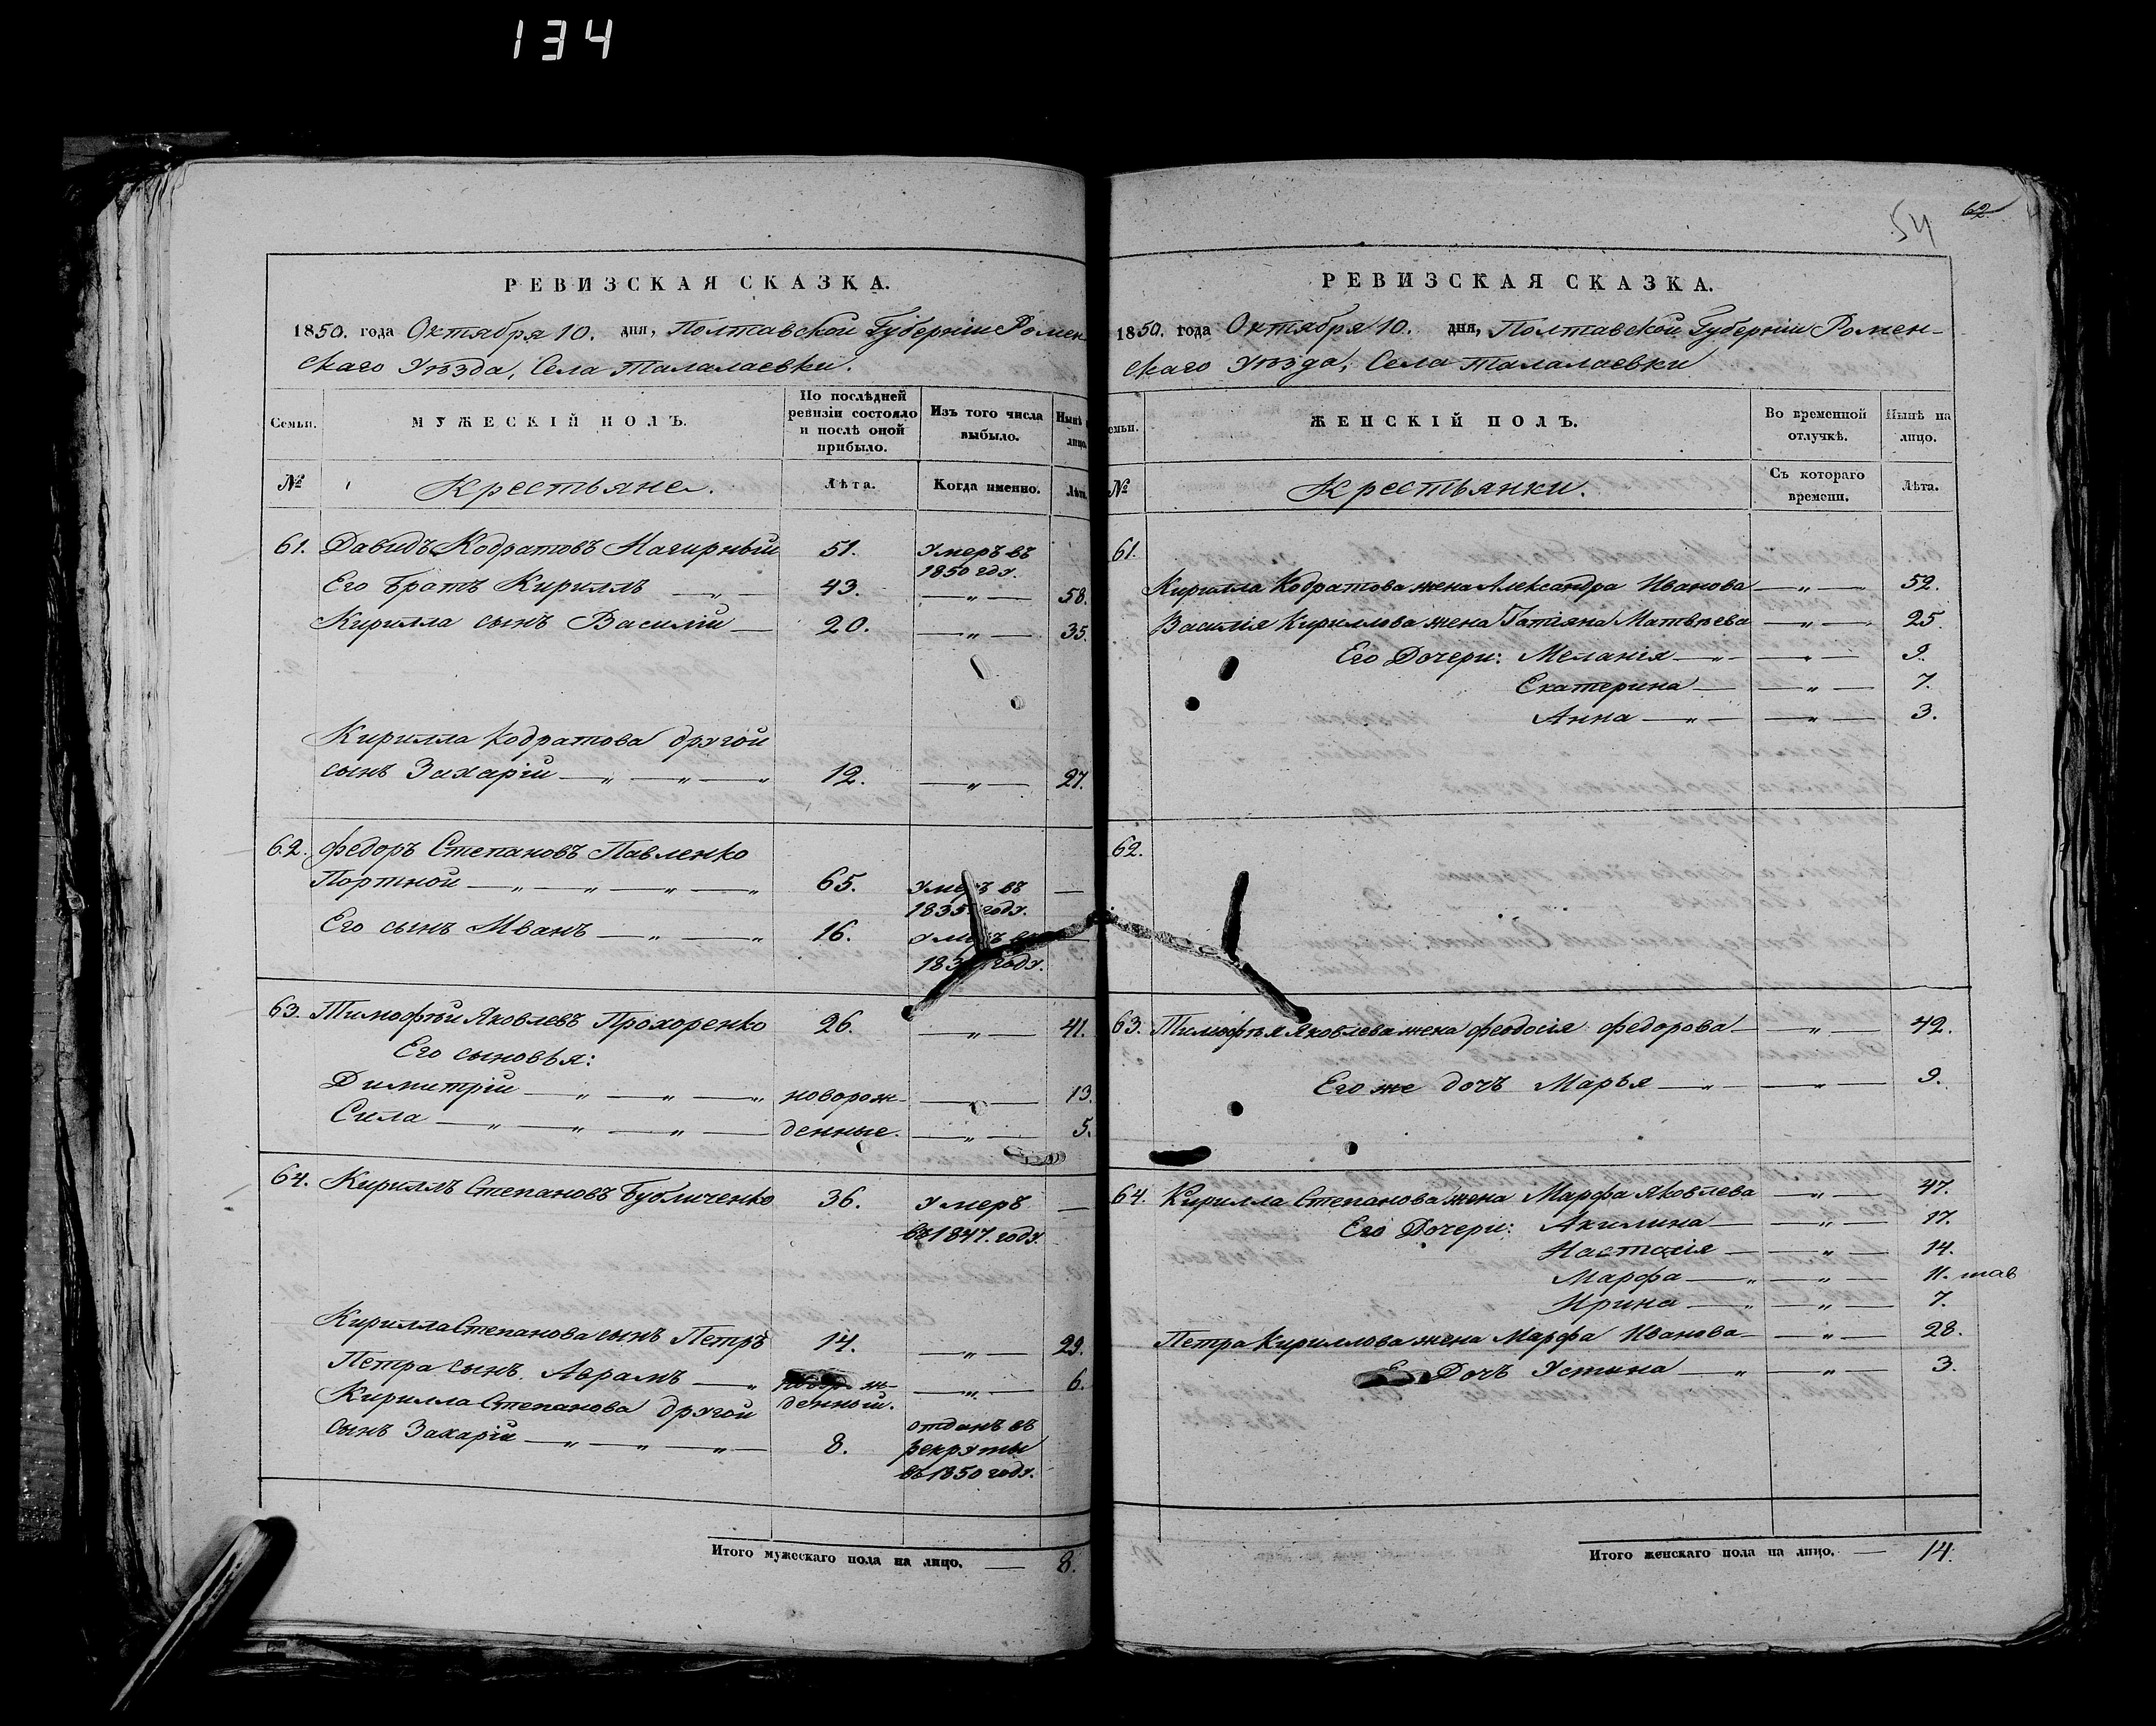 134
РЕВИЗСКАЯ СКАЗКА.
1850. года Октября 10. дня, Полтавской Губерніи Ромен
скаго Уѣзда, Села Талалаевки.
Семьи.
МУЖЕСКІЙ ПОЛЪ.
По послѣдней ревизіи состояло и послѣ оной прибыло.
Изъ того числа выбыло.
Нынѣ лицо.
№
Крестьяне.
Лѣта.
Когда именно.
Лѣта
61. Давидъ Кодратовъ 51. Умеръ въ
1850 году.
Его братъ Кирилъ — „ — 43. — „ — 58.
Кирилла сынъ Василій — 20. — „ — 35.
Кирилла Кодратова другой
сынъ Захарій — „ — „ — „ 12. — „ — 27.
62. Федоръ Степановъ Павленко
Портной — „ — „ — „ — „ 65. Умеръ въ —
1835. году.
Его сынъ Иванъ — „ — „ 16. Умеръ въ —
году.
63. Тимофѣй Яковлевъ Прохоренко 26. — „ — 41.
Его сыновья:
Димитрій — „ — „ — „ новорож- — „ — 13.
Сила — „ — „ — „ — денные. — „ — 5.
64. Кирилъ Степановъ Бубличенко 36. Умеръ —
въ 1847. году.
Кирилла Степанова сынъ Петръ 14. — „ — 29.
Петра сынъ Аврамъ — „ новорож- — „ — 6.
Кирилла Степанова другой денный.
сынъ Захарій — „ — „ — „ — 8. отданъ въ
рекруты
въ 1850 году.
Итого мужескаго пола на лицо. — 8.
54 62
РЕВИЗСКАЯ СКАЗКА.
1850. года Октября 10. дня, Полтавской Губерніи Ромен-
скаго Уѣзда, Села Талалаевки
семьи.
ЖЕНСКІЙ ПОЛЪ.
Во временной отлучкѣ.
Нынѣ на лицо.
№
Крестьянки.
Съ котораго времени.
Лѣта.
61.
Кирилла Кодратова жена Александра Иванова — „ — 52.
Василія Кириллова жена Татіяна Матвѣева — „ — 25.
Его Дочери: Меланія — „ — — „ — 9.
Екатерина — — „ — 7.
Анна — „ — — „ — 3.
62.
63. Тимофѣя Яковлева жена Феодосія Федорова — „ — 42.
Его же дочь Марья — „ — „ — 9.
64. Кирилла Степанова жена Марфа Яковлева — „ — 47.
Его Дочери: Акилина — — „ — 17.
Настасія — — „ — 14.
Марфа — „ — „ — 11.
Ирина — „ — „ — 7.
Петра Кириллова жена Марфа Иванова — „ — 28.
Дочь Устина — „ — „ — 3.
Итого женскаго пола на лицо. — 14.